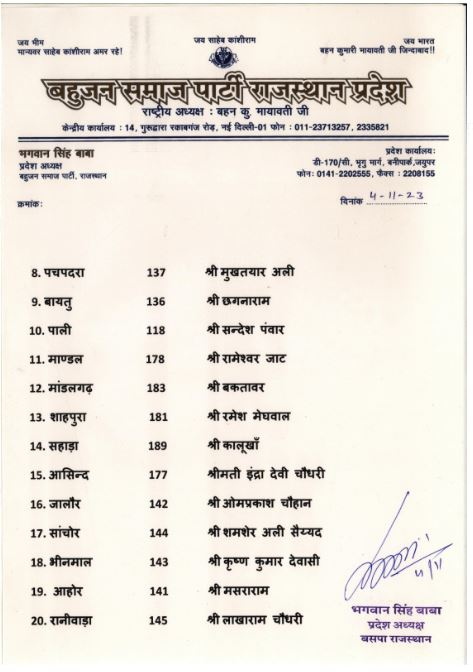 जय भीम
मान्यवर साहेब कांशीराम अमर रहे!
जय साहेब कांशीराम
जय भारत
बहन कुमारी मायावती जी जिन्दाबाद!!
बहुजन समाज पार्टी राजस्थान प्रदेश
राष्ट्रीय अध्यक्ष : बहन कु. मायावती जी
केन्द्रीय कार्यालय : 14, गुरूद्वारा रकाबगंज रोड़, नई दिल्ली-01 फोन : 011-23713257, 2335821
भगवान सिंह बाबा
प्रदेश अध्यक्ष
बहुजन समाज पार्टी, राजस्थान
प्रदेश कार्यालय:
डी-170/सी, भृगु मार्ग, बनीपार्क,जयपुर
फोन: 0141-2202555, फैक्स : 2208155
क्रमांक:
दिनांक 4-11-23
8. पचपदरा 137 श्री मुखतयार अली
9. बायतु 136 श्री छगनाराम
10. पाली 118 श्री सन्देश पंवार
11. माण्डल 178 श्री रामेश्वर जाट
12. मांडलगढ़ 183 श्री बकतावर
13. शाहपुरा 181 श्री रमेश मेघवाल
14. सहाड़ा 189 श्री कालूखाँ
15. आसिन्द 177 श्रीमती इंद्रा देवी चौधरी
16. जालौर 142 श्री ओमप्रकाश चौहान
17. सांचोर 144 श्री शमशेर अली सैय्यद
18. भीनमाल 143 श्री कृष्ण कुमार देवासी
19. आहोर 141 श्री मसराराम
20. रानीवाड़ा 145 श्री लाखाराम चौधरी
4/11
भगवान सिंह बाबा
प्रदेश अध्यक्ष
बसपा राजस्थान